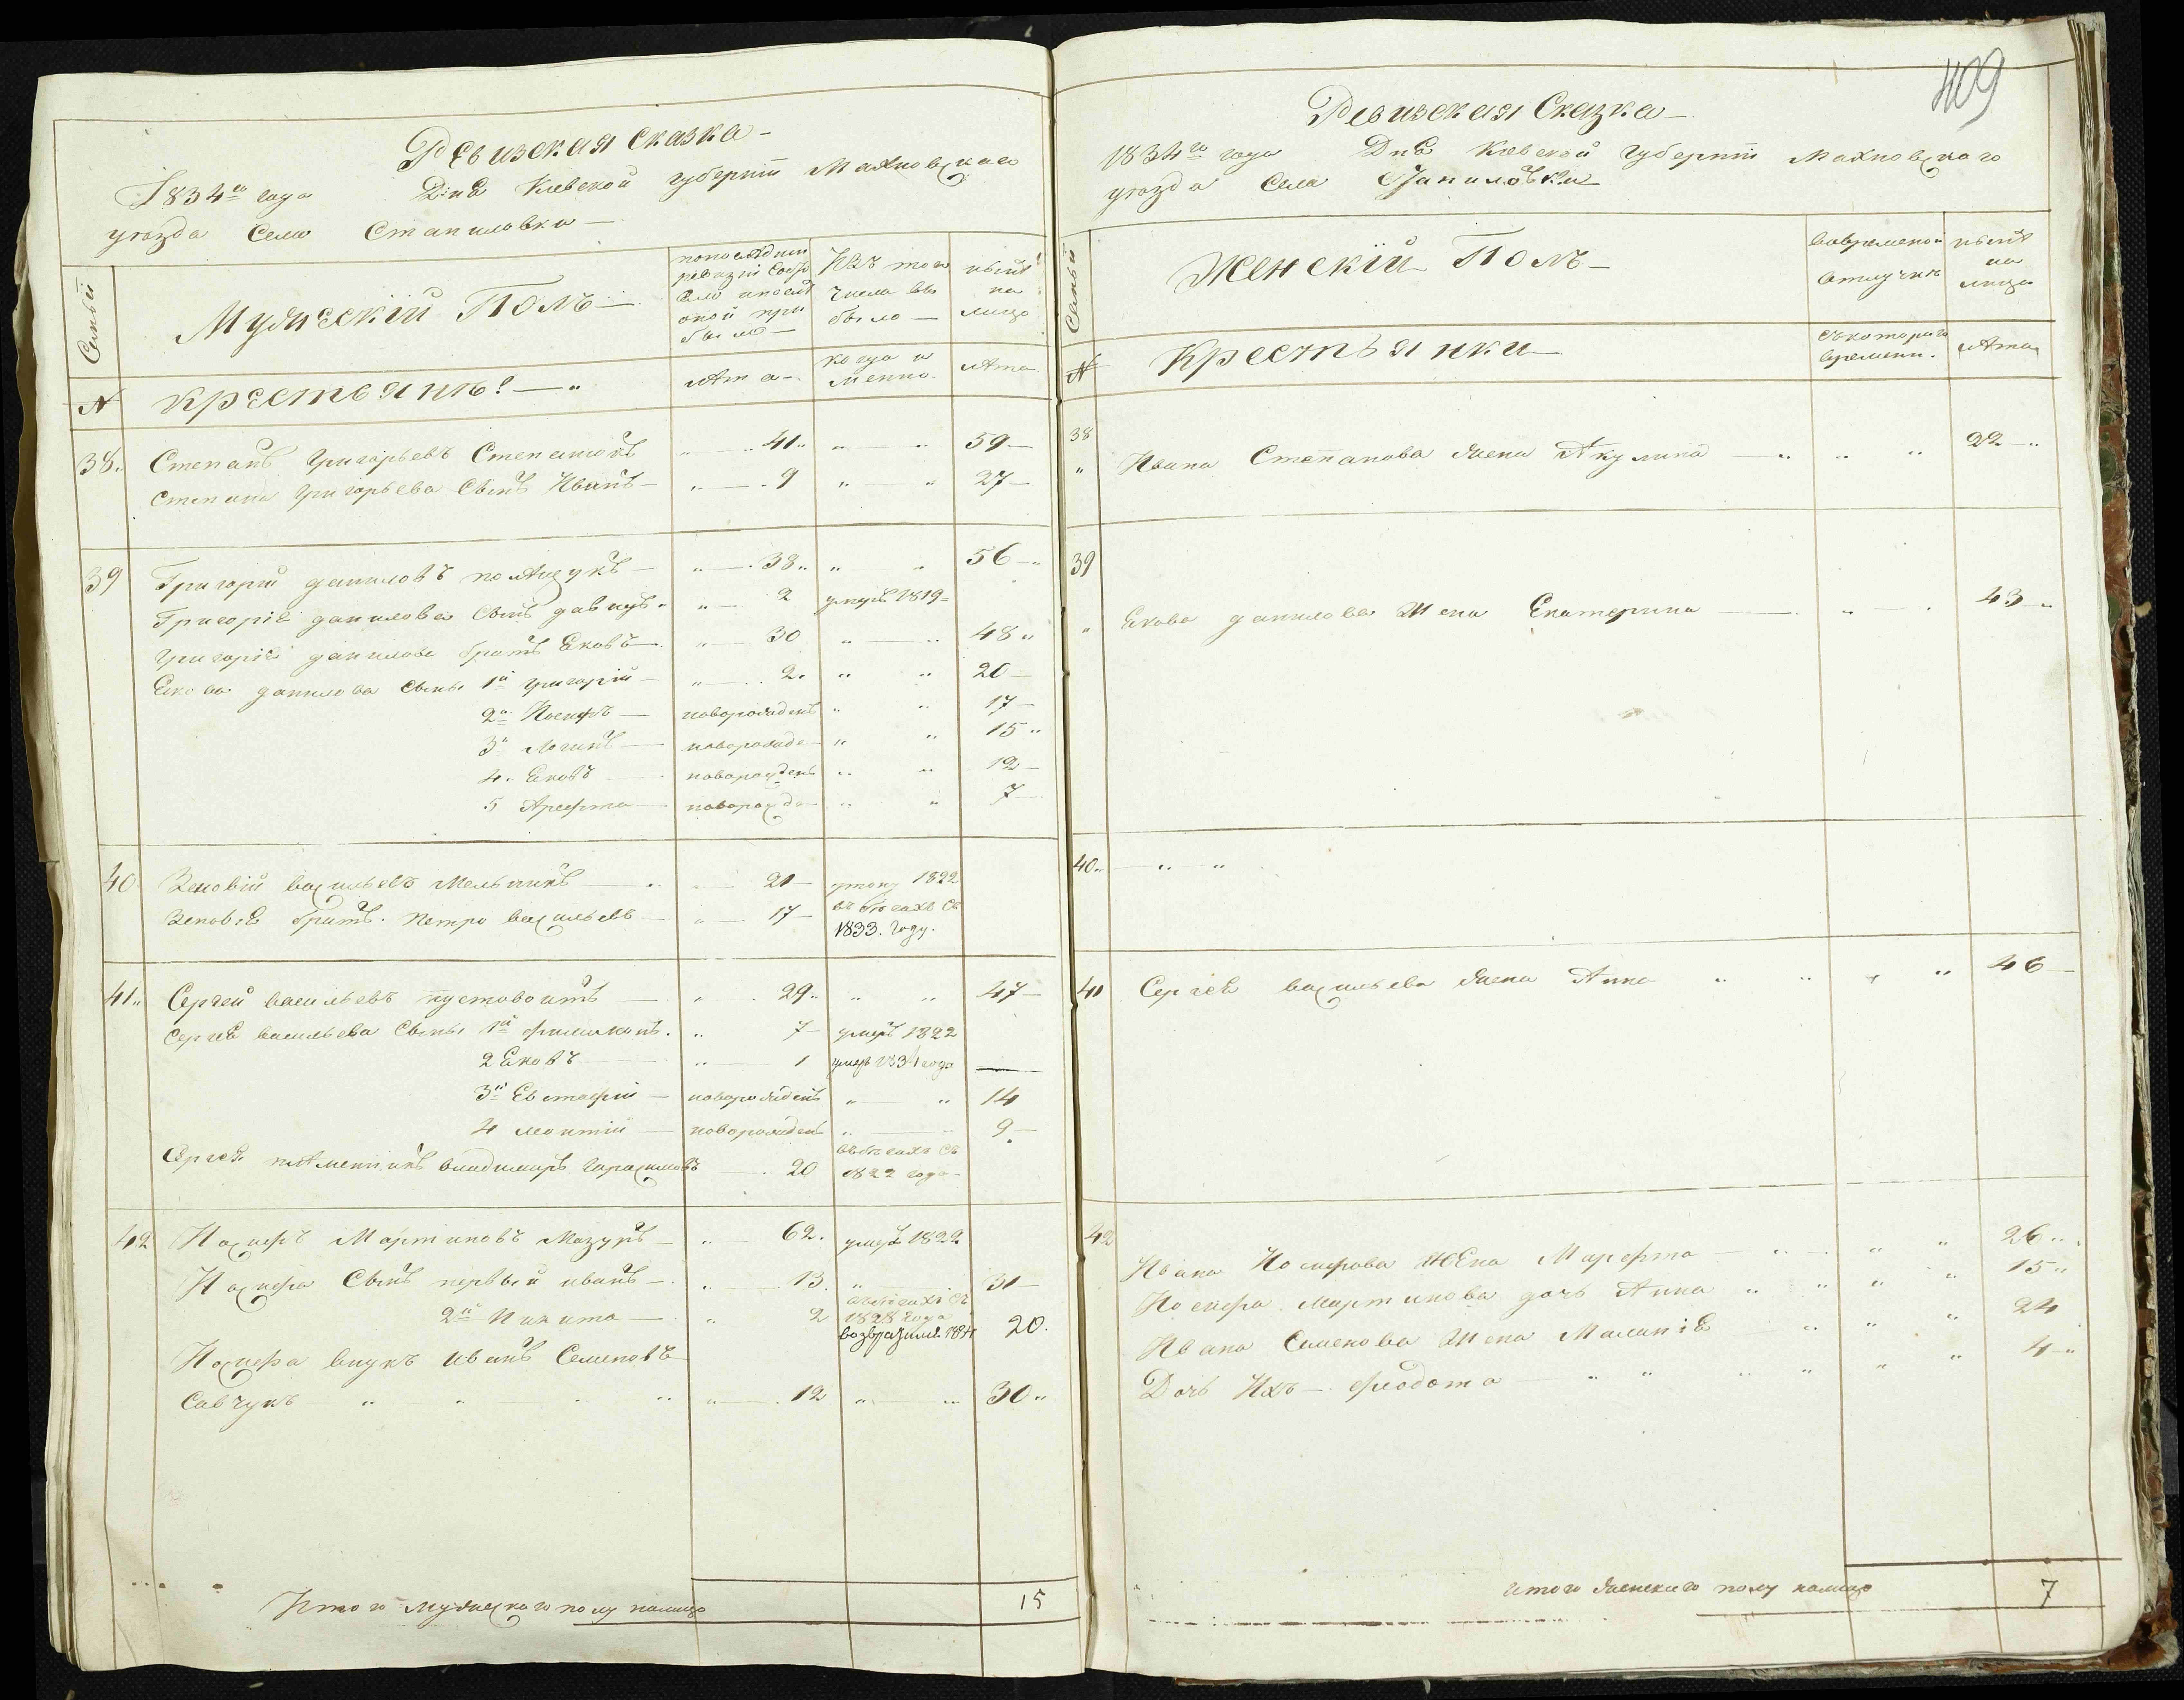 Ревизская Сказка
1834го года Дня Киевской губернiи Махновскаго
уѣзда Села Станиловки
Семьи
Мужескiй Полъ
по последней
ревизiи состо
яло и после
оной при
было
Изъ того
числа вы
было
нынѣ
на
лицо
№
крестьянѣ
лѣта
когда и
менно
лѣта
38. Степанъ Григорьевъ Степанюкъ 41 59
Степана Григорьева Сынъ Иванъ 9 27
39 Григорiй даниловъ полѣщукъ 38 56
Григорiя данилова Сынъ давидъ 2 умеръ 1819
Григорiя данилова братъ Ековъ 30 48
Екова данилова Сыны 1й григорiй 2 20
2й Иосифъ новорожденъ 17
3й Логинъ новорожде 15
4. Ековъ новорожденъ 12
5 Арефта новорожде 7
40 Зеновiй васильевъ Мельникъ 21 утону 1822
Зеновiя братъ Петро васильевъ 17 въ бегахъ съ
1833. году.
41 Сергей васильевъ пустовоитъ 29 47
Сергея васильева Сыны 1й филимонъ 7 умеръ 1822
2 Ековъ 1 умеръ 1831 года
3й Евстафiй новорожденъ 14
4 леонтiй новорожденъ 9
Сергея племѣнникъ владимиръ гарасимовъ 20 въ бегахъ съ
1822 года
42 Иосифъ Мартиновъ Мазуръ 62. умеръ 1822
Иосифа Сынъ первый иванъ 13 31
2й Никита 2 въ бегахъ съ
1828 года
возвратился 1834 20.
Иосифа внукъ иванъ Семеновъ
Савчукъ 12 30
Итого Мужескаго полу налицо 15
409
Ревизская Сказка
1834го года Дня Киевской губернiи Махновскаго
уѣзда Села Станиловки
Семьи
Женскiй Полъ
во временной
отлучкѣ
нынѣ
на
лицо
№
Крестьянки
съ котораго
времени.
лѣта
38 Ивана Степанова жена Акулина 22
39 Екова данилова Жена Екатерина 43
40
41 Сергея васильева жена Анна 46
42
Ивана Иосифова жена Марефта 26
Иосифа мартинова дочь Анна 15
Ивана Семенова Жена Маланiя 24
Дочь Ихъ феодота 4
итого женскаго полу налицо 7